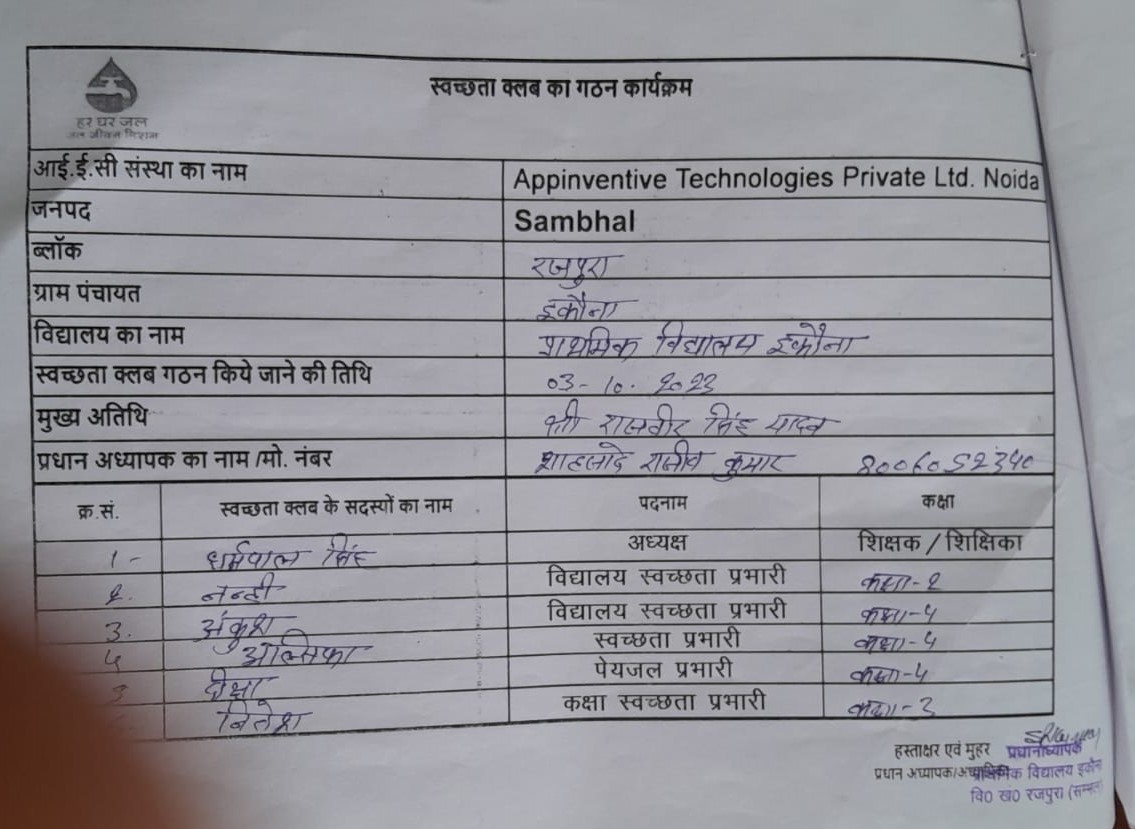 स्वच्छता क्लब का गठन कार्यक्रम
हर घर जल
जल जीवन मिशन
आई.ई.सी संस्था का नाम Appinventive Technologies Private Ltd. Noida
जनपद Sambhal
ब्लॉक रजपुरा
ग्राम पंचायत इकौना
विद्यालय का नाम प्राथमिक विद्यालय इकौना
स्वच्छता क्लब गठन किये जाने की तिथि 03-10.2023
मुख्य अतिथि श्री राजवीर सिंह यादव
प्रधान अध्यापक का नाम /मो. नंबर शाहजादे राजीव कुमार 8006052340
क्र.सं. स्वच्छता क्लब के सदस्यों का नाम पदनाम कक्षा
1- धर्मपाल सिंह अध्यक्ष शिक्षक / शिक्षिका
2. नन्ही विद्यालय स्वच्छता प्रभारी कक्षा-2
3. अंकुश विद्यालय स्वच्छता प्रभारी कक्षा-4
4 अल्सिफा स्वच्छता प्रभारी कक्षा-4
दीक्षा पेयजल प्रभारी कक्षा-4
बितेश कक्षा स्वच्छता प्रभारी कक्षा-3
हस्ताक्षर एवं मुहर प्रधानाध्यापक
प्रधान अध्यापक/अध्यापिका प्राथमिक विद्यालय इकौना
वि0 ख0 रजपुरा (सम्भल)